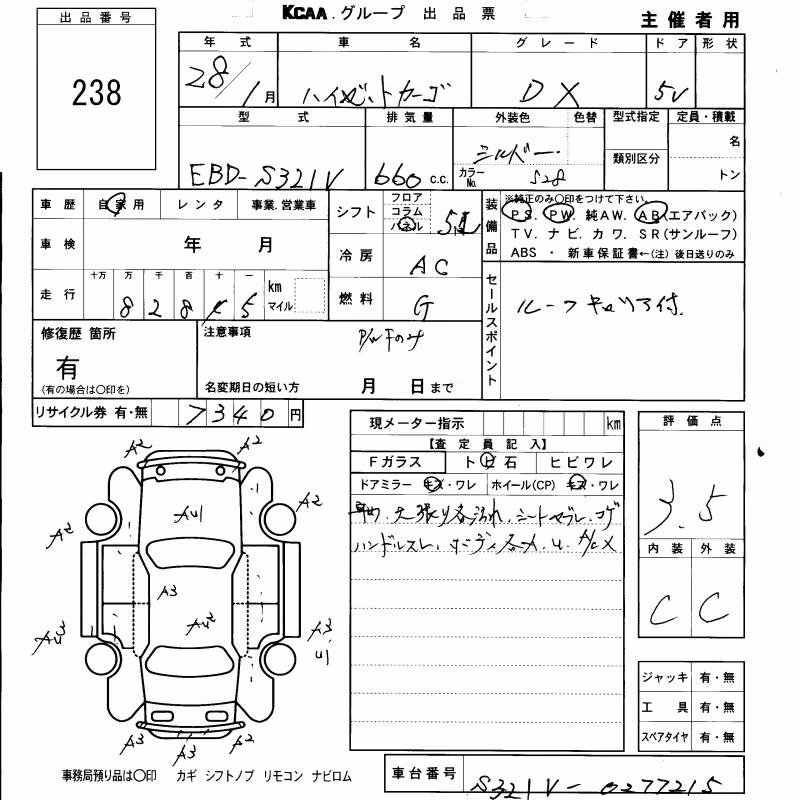 出品番号
KCAA.グループ 出品票
主催者用
238
年式 車名 グレード ドア 形状
28/1月 ハイゼットカーゴ DX 5V
型式 排気量 外装色 色替 型式指定 定員・積載
EBD-S321V 660 c.c. シルバー 名
カラーNo. S28 類別区分 トン
車歴 自家用 レンタ 事業.営業車
車検 年 月
走行 十万 万 千 百 十 一 km マイル
8 2 8 5
シフト フロア コラム パネル 5
冷房 AC
燃料 G
装備品
※純正のみ〇印をつけて下さい。
PS. PW. 純AW. AB(エアバック)
TV. ナビ. カワ. SR(サンルーフ)
ABS ・ 新車保証書←(注) 後日送りのみ
セールスポイント
ルーフキャリア付.
修復歴 箇所
有
(有の場合は〇印を)
注意事項
P/W Fのみ
名変期日の短い方 月 日まで
リサイクル券 有・無 7340円
現メーター指示 km
【査定員記入】
Fガラス ト ビ 石 ヒビワレ
ドアミラー キズ・ワレ ホイール(CP) キズ・ワレ
天張り 汚れ. シート コゲ
ハンドルスレ. A/C X
評価点
3.5
内装 外装
C C
ジャッキ 有・無
工具 有・無
スペアタイヤ 有・無
A2 A2
AU1
A2 A2
A3
AU2
AU3 A3
U1
A3 A3 A2
事務局預り品は〇印 カギ シフトノブ リモコン ナビロム
車台番号 S321V-0277215